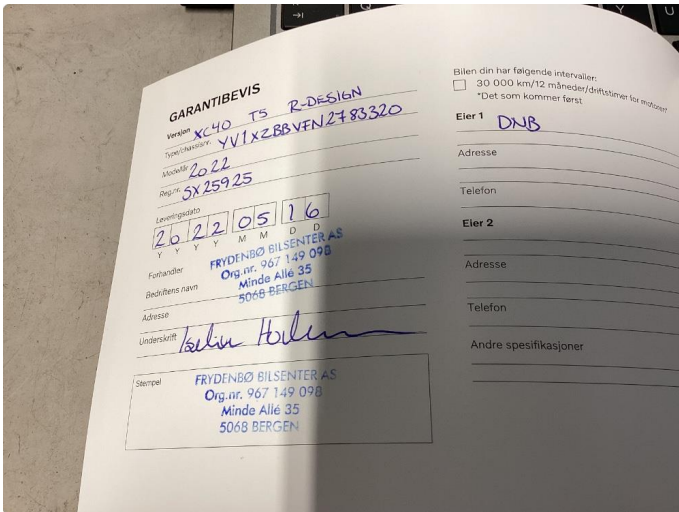 GARANTIBEVIS
Versjon XC40 T5 R-DESIGN
Type/chassisnr. YV1XZBBVFN2783320
Modellår 2022
Reg.nr. SX25925
Leveringsdato
2022 05 16
Y Y Y Y M M D D
Forhandler
Bedriftens navn
FRYDENBØ BILSENTER AS
Org.nr. 967 149 098
Minde Allé 35
5068 BERGEN
Adresse
Underskrift
Stempel
FRYDENBØ BILSENTER AS
Org.nr. 967 149 098
Minde Allé 35
5068 BERGEN
Bilen din har følgende intervaller:
30 000 km/12 måneder/driftstimer for motoren*
*Det som kommer først
Eier 1 DNB
Adresse
Telefon
Eier 2
Adresse
Telefon
Andre spesifikasjoner